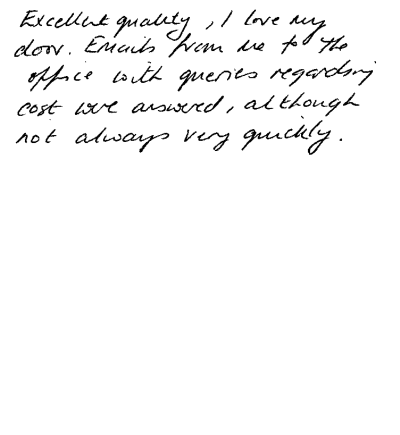 Excellent quality, I love my
door. Emails from me to the
office with queries regarding
cost were answered, although
not always very quickly.